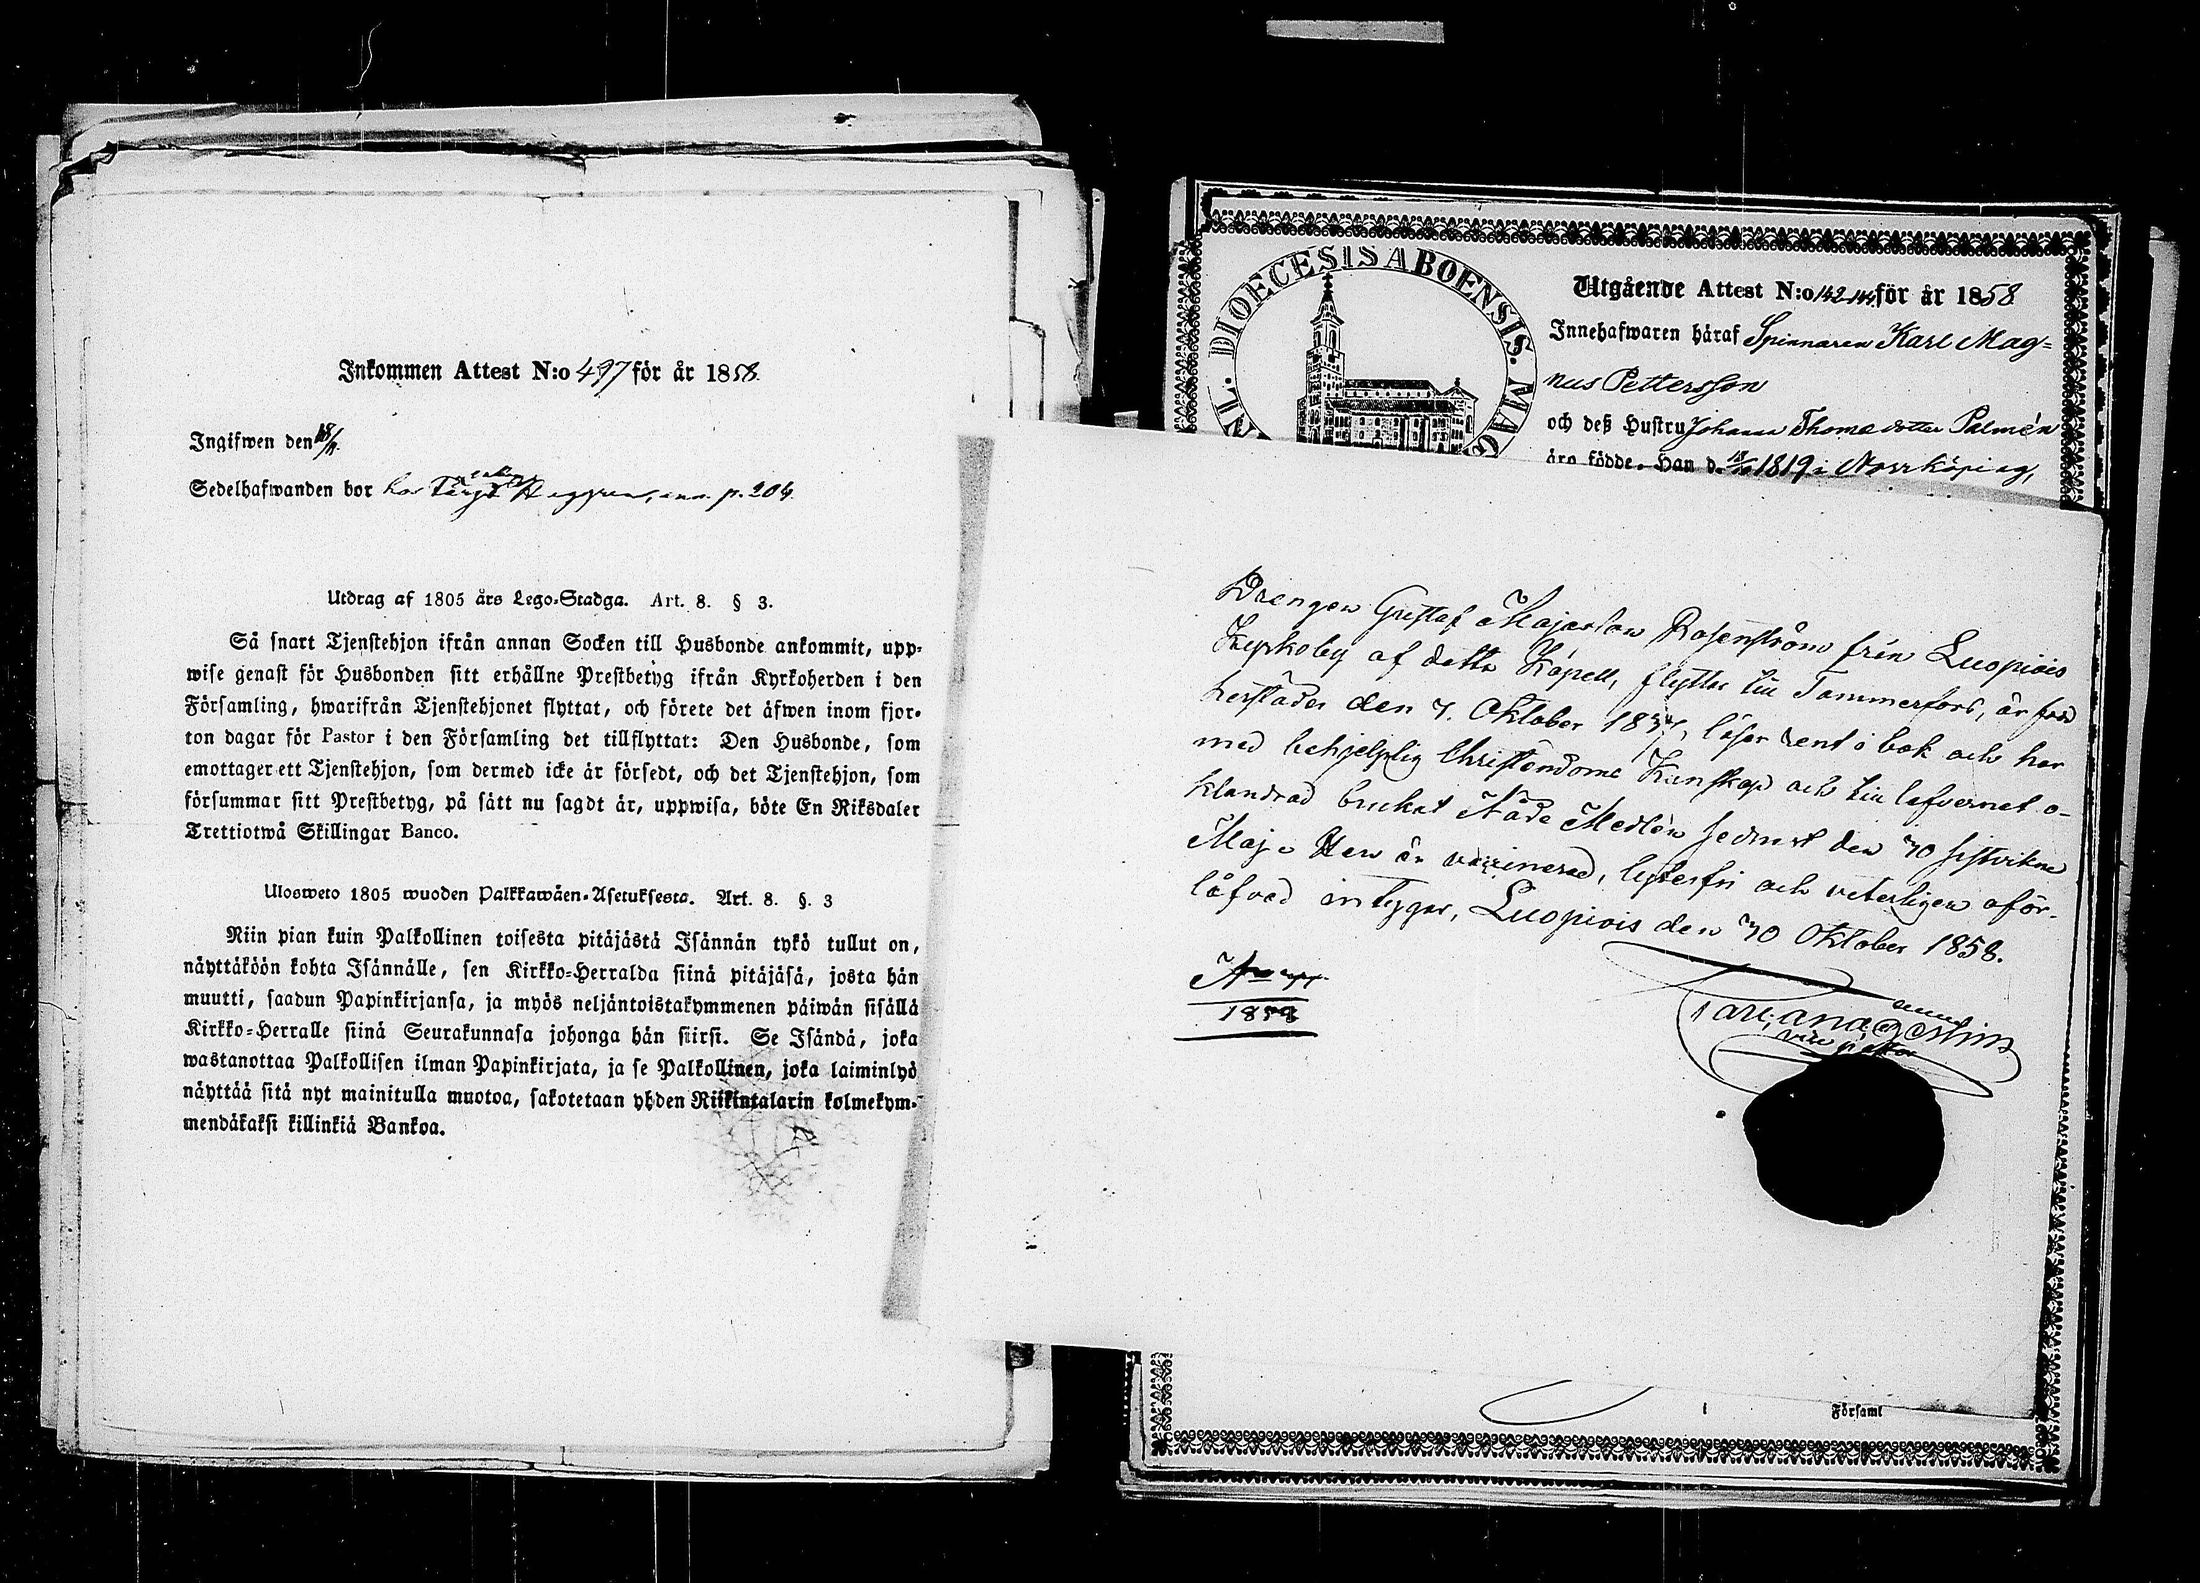 Inkommen Attest N:o 497 för år 1858.
Ingifwen den 18/11.
Sedelhafwanden bor hos Heggren, ann. p. 204.
Utdrag af 1805 års Lego-Stadga. Art. 8. § 3.
Så snart Tjenstehjon ifrån annan Socken till Husbonde ankommit, upp-
wise genast för Husbonden sitt erhållne Prestbetyg ifrån Kyrkoherden i den
Församling, hwarifrån Tjenstehjonet flyttat, och förete det äfwen inom fjor-
ton dagar för Pastor i den Församling det tillflyttat: Den Husbonde, som
emottager ett Tjenstehjon, som dermed icke är försedt, och det Tjenstehjon, som
försummar sitt Prestbetyg, på sätt nu sagdt är, uppwisa, böte En Riksdaler
Trettiotwå Skillingar Banco.
Ulosweto 1805 wuoden Palkkawäen-Asetuksesta. Art. 8. §. 3
Niin pian kuin Palkollinen toisesta pitäjästä Isännän tykö tullut on,
näyttäköön kohta Isännälle, sen Kirkko-Herralda siinä pitäjäsä, josta hän
muutti, saadun Papinkirjansa, ja myös neljäntoistakymmenen päiwän sisällä
Kirkko-Herralle siinä Seurakunnasa johonga hän siirsi. Se Isändä, joka
wastanottaa Palkollisen ilman Papinkirjata, ja se Palkollinen, joka laiminlyö
näyttää sitä nyt mainitulla muotoa, sakotetaan yhden Riikintalarin kolmekym-
mendäkaksi killinkiä Bankoa.
DIOECESIS ABOENSIS. MAG
Utgående Attest N:o 142 144 för år 1858
Innehafwaren häraf Spinnaren Karl Mag=
nus Pettersson
och deß Hustru Johanna Thomasdotter Palmén
äro födde. Han d. 1819 i Norrköping,
Drengen Gustaf Majasson Rosenström från Luopiois
Kyrkoby af detta Kapell, flyttar till Tammerfors, är född
herstädes den 7. Oktober 1837, läser rent i bok och har
med behjelplig Christendoms Kunskap och till lefvernet o-
klandrad brukat Nåde Medlen sednast den 30 sistvikne
Maji. Han är vaccinerad, lyterfri och veterligen oför-
låfvad intygar, Luopiois den 30 Oktober 1858.
1858
vice pastor
Församl